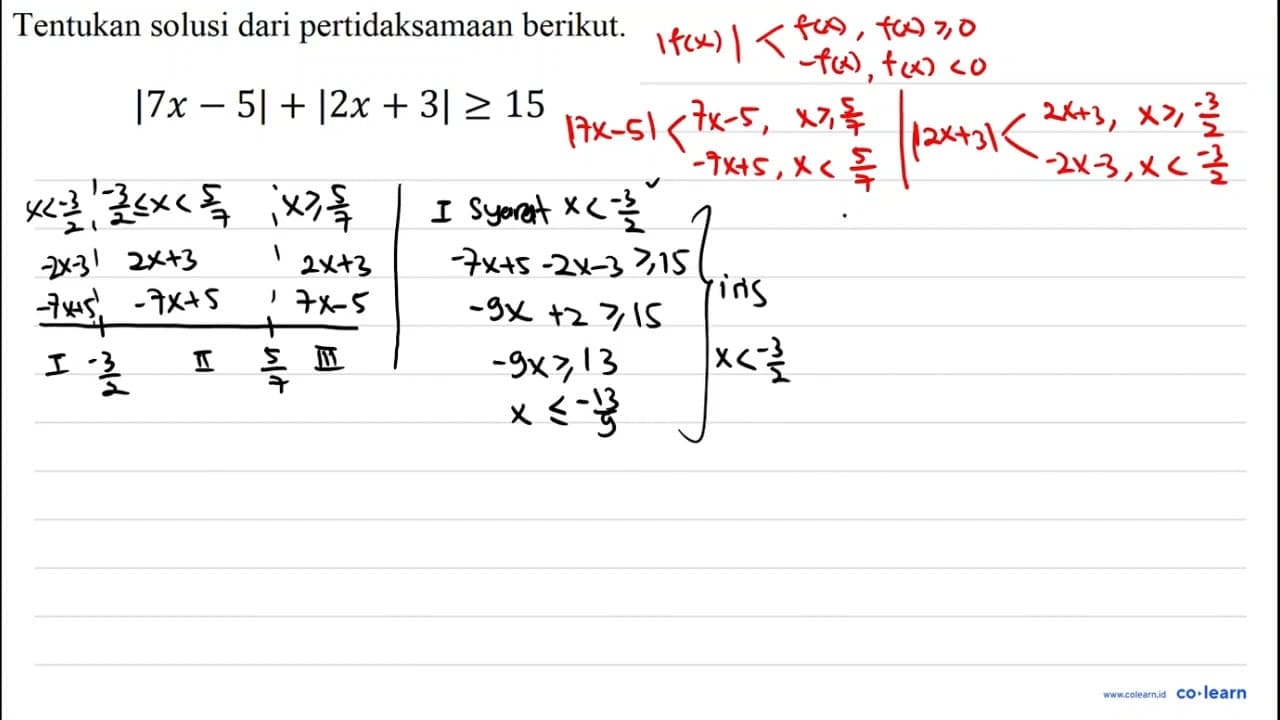 Tentukan solusi dari pertidaksamaan berikut.
|7x − 5| + |2x + 3| ≥ 15
|f(x)| < f(x), f(x) ≥ 0
-f(x), f(x) < 0
|7x-5| < 7x-5, x ≥ 5/7
-7x+5, x < 5/7
|2x+3| < 2x+3, x ≥ -3/2
-2x-3, x < -3/2
x < -3/2 -3/2 ≤ x < 5/7 x ≥ 5/7
-2x-3 2x+3 2x+3
-7x+5 -7x+5 7x-5
I -3/2 II 5/7 III
I Syarat x < -3/2 ✓
-7x+5 -2x-3 ≥ 15
-9x +2 ≥ 15
-9x ≥ 13
x ≤ -13/9
iris
x < -3/2
www.colearn.id co·learn